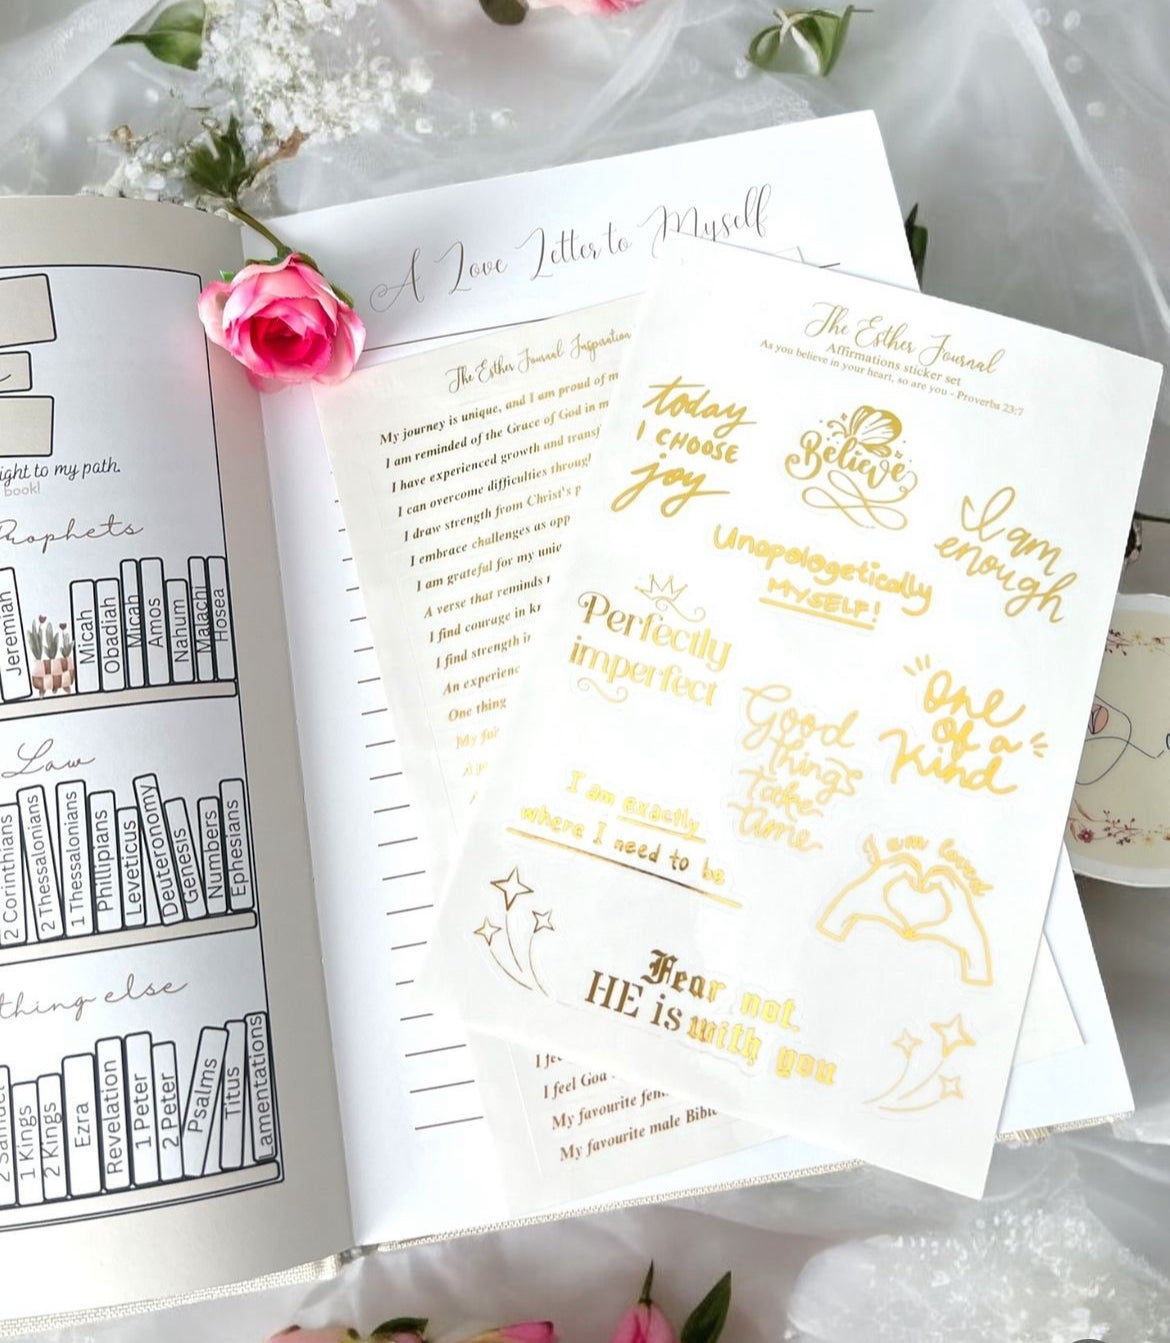 ight to my path.
book!
Prophets
Jeremiah
Micah
Obadiah
Micah
Amos
Nahum
Malachi
Hosea
Law
2 Corinthians
2 Thessalonians
1 Thessalonians
Phillipians
Leveticus
Deuteronomy
Genesis
Numbers
Ephesians
thing else
1 Kings
2 Kings
Ezra
Revelation
1 Peter
2 Peter
Psalms
Titus
Lamentations
A Love Letter to Myself
The Esther Journal Inspiration
My journey is unique, and I am proud of m
I am reminded of the Grace of God in m
I have experienced growth and transf
I can overcome difficulties through
I draw strength from Christ's p
I embrace challenges as opp
I am grateful for my uniq
A verse that reminds
I find courage in kn
I find strength in
An experienc
One thing
My
I feel God
My favourite fem
My favourite male Bible
The Esther Journal
Affirmations sticker set
As you believe in your heart, so are you - Proverbs 23:7
today
I CHOOSE
joy
Believe
I am
enough
Unapologetically
MYSELF!
Perfectly
imperfect
Good
things
take
time
One
of a
Kind
I am exactly
where I need to be
I am loved
Fear not,
HE is with you